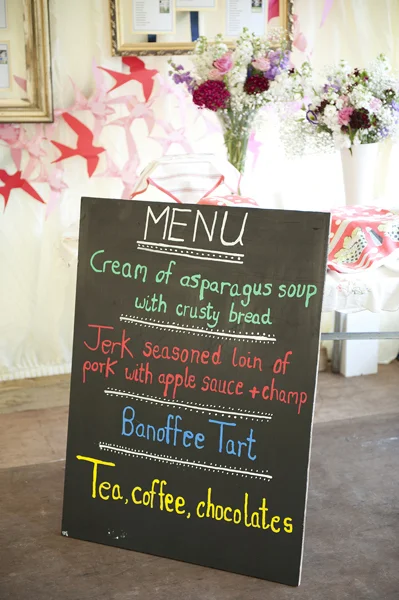 MENU
Cream of asparagus soup
with crusty bread
Jerk seasoned loin of
pork with apple sauce + champ
Banoffee Tart
Tea, coffee, chocolates